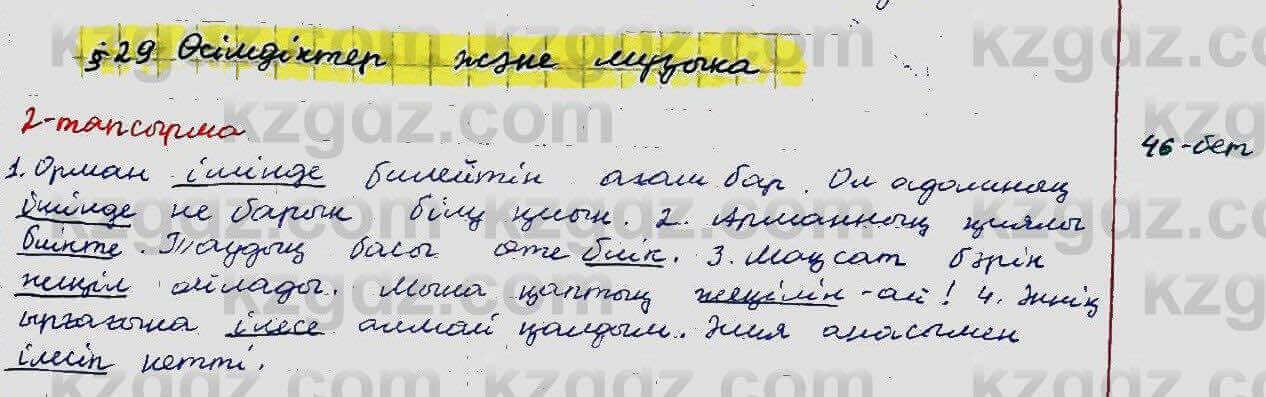 § 29 Өсімдіктер және музыка
2-тапсырма
46-бет
1. Орман ішінде билейтін ағаш бар. Ол адамның
ішінде не барын білу қиын. 2. Арманның қиялы
биікте. Таудың басы өте биік. 3. Мақсат бәрін
жеңіл ойлады. Мына қаптың жеңілін-ай! 4. Әннің
ырғағына ілесе алмай қалдым. Әлия анасымен
ілесіп кетті.
kzgdz.com